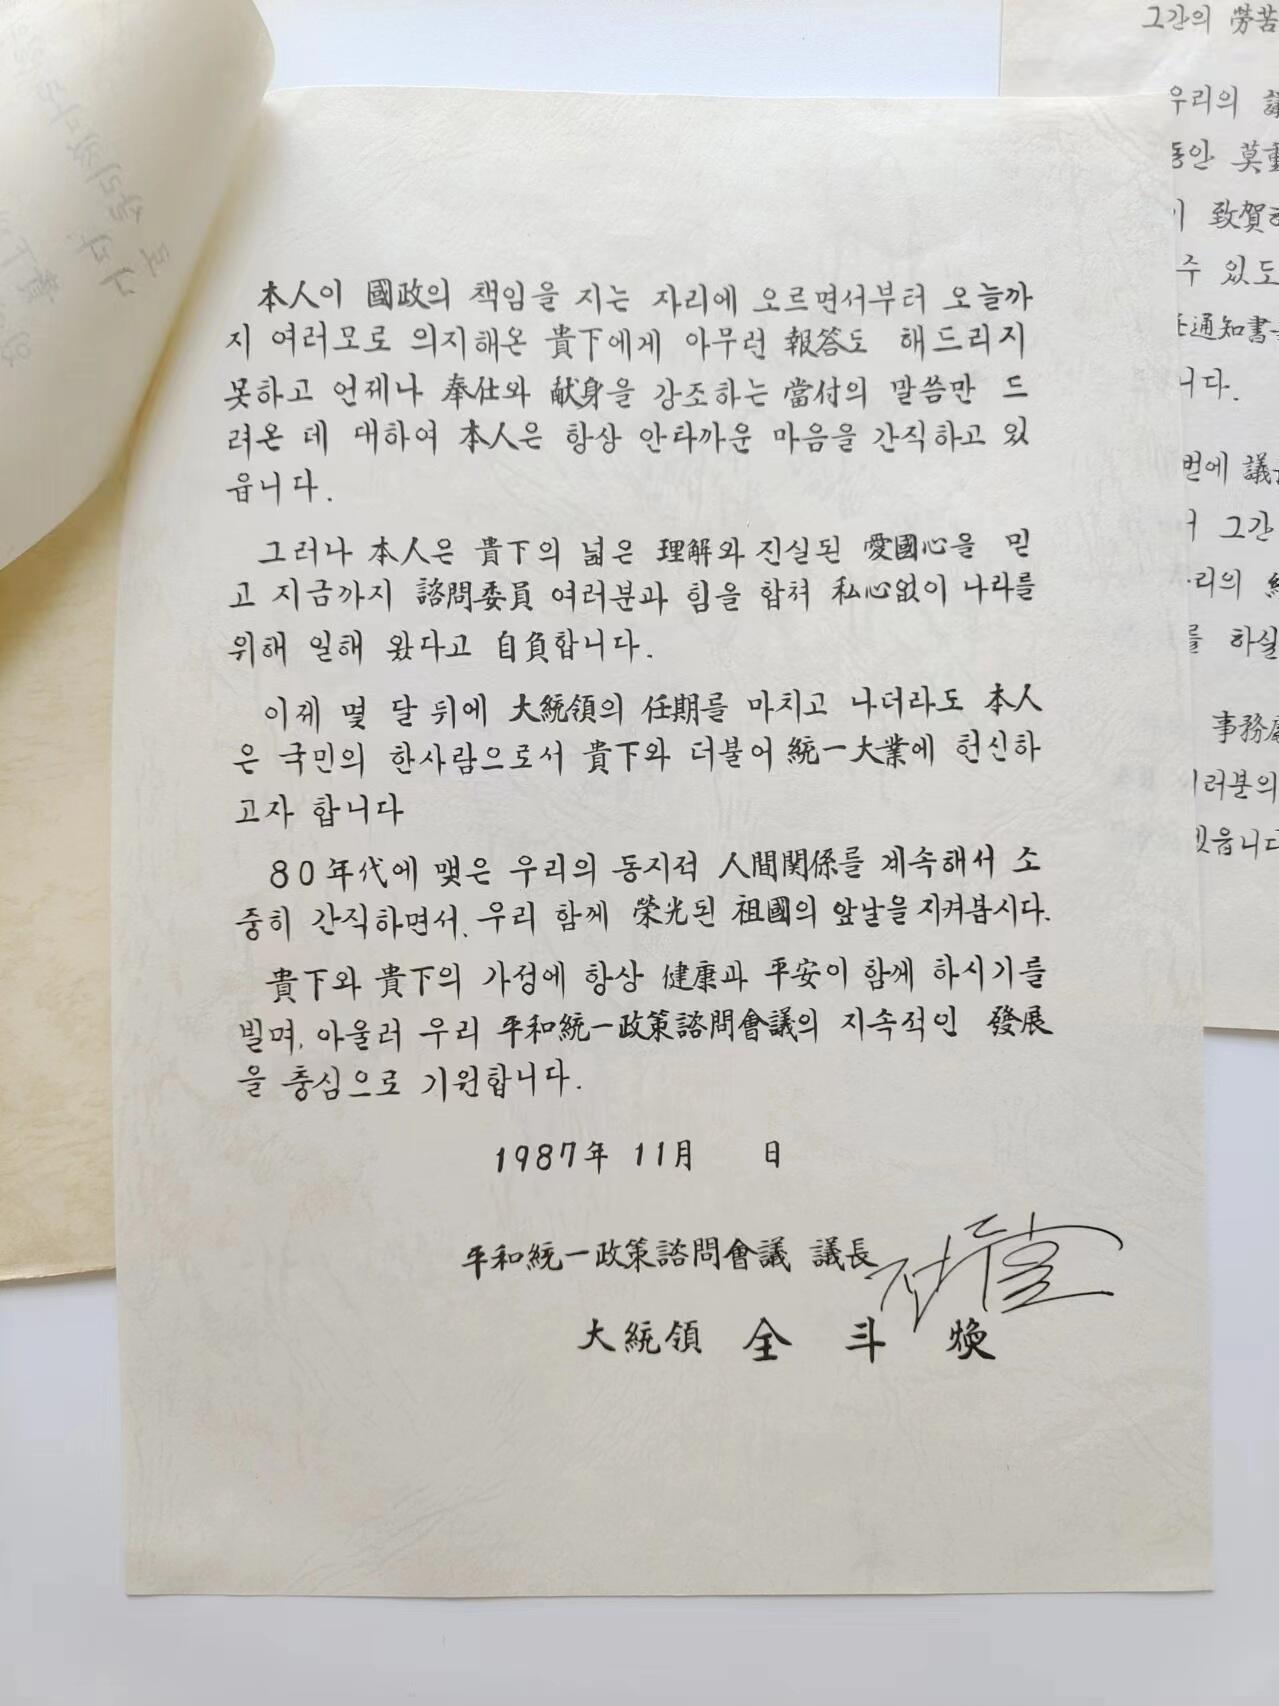 本人이 國政의 책임을 지는 자리에 오르면서부터 오늘까
지 여러모로 의지해온 貴下에게 아무런 報答도 해드리지
못하고 언제나 奉仕와 献身을 강조하는 當付의 말씀만 드
려온 데 대하여 本人은 항상 안타까운 마음을 간직하고 있
읍니다.
그러나 本人은 貴下의 넓은 理解와 진실된 愛國心을 믿
고 지금까지 諮問委員 여러분과 힘을 합쳐 私心없이 나라를
위해 일해 왔다고 自負합니다.
이제 몇 달 뒤에 大統領의 任期를 마치고 나더라도 本人
은 국민의 한사람으로서 貴下와 더불어 統一大業에 헌신하
고자 합니다
80年代에 맺은 우리의 동지적 人間関係를 계속해서 소
중히 간직하면서, 우리 함께 榮光된 祖國의 앞날을 지켜봅시다.
貴下와 貴下의 가정에 항상 健康과 平安이 함께 하시기를
빌며, 아울러 우리 平和統一政策諮問會議의 지속적인 發展
을 충심으로 기원합니다.
1987年 11月 日
平和統一政策諮問會議 議長
大統領 全 斗 煥
그간의 勞苦
우리의
동안
致賀
주 있도
通知書
니다.
번에
그간
리의
를 하실
事務
여러분의
겠읍니다